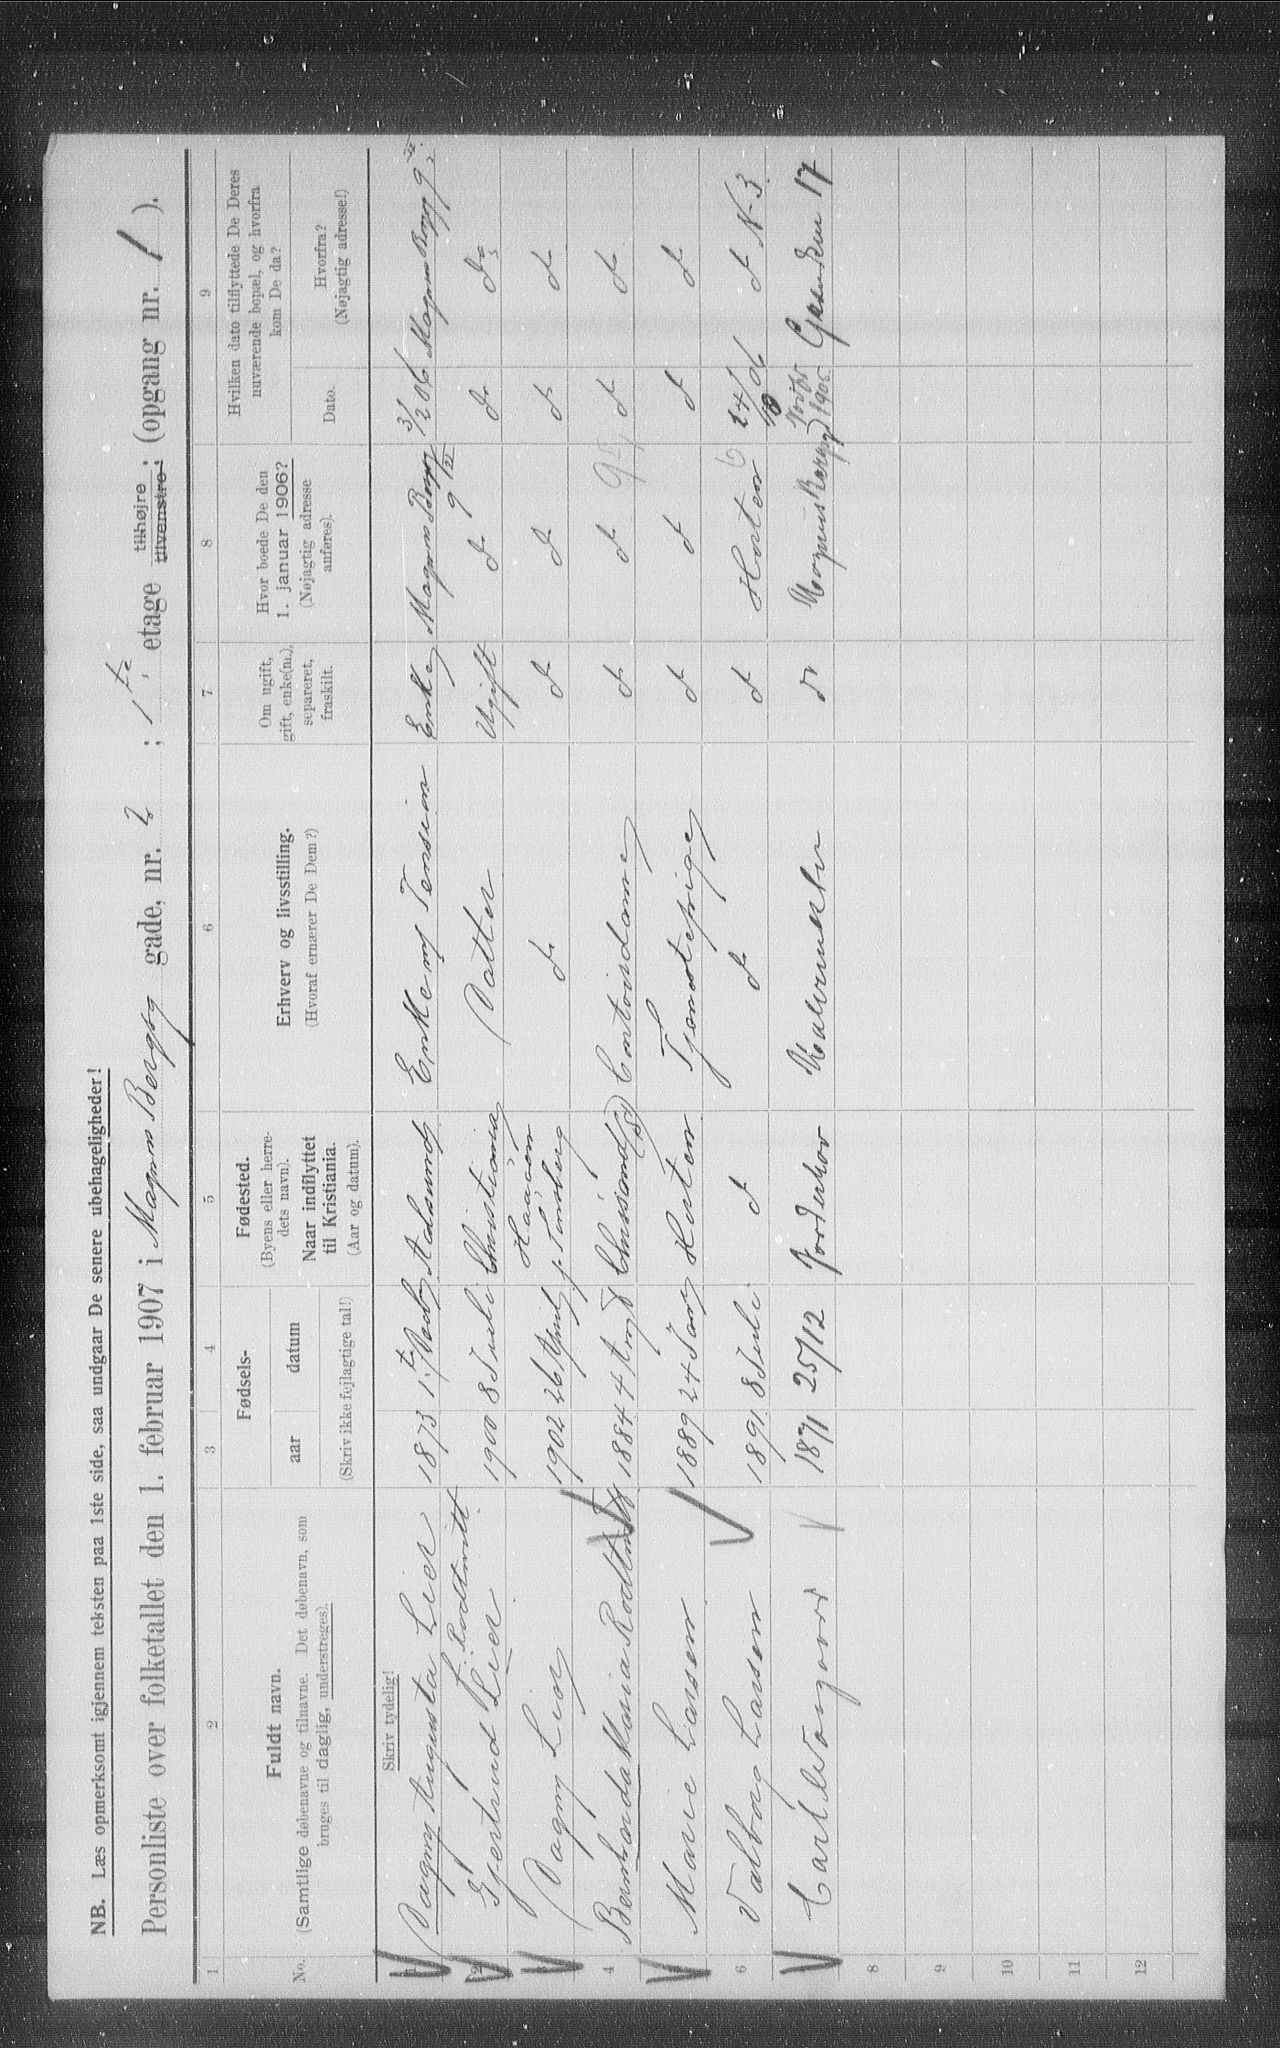 NB. Læs opmerksomt igjennem teksten paa 1ste side, saa undgaar De senere ubehageligheder!
Personliste over folketallet den 1. februar 1907 i Magnus Bergs gade, nr. 2 ; 1ste etage tilhøjre tilvenstre; (opgang nr. 1 ).
1 2 3 4 5 6 7 8 9
No.
Fuldt navn.
(Samtlige døbenavne og tilnavne. Det døbenavn, som
bruges til daglig, understreges).
Fødsels-
aar datum
(Skriv ikke fejlagtige tal!)
Fødested.
(Byens eller herre-
dets navn).
Naar indflyttet
til Kristiania.
(Aar og datum).
Erhverv og livsstilling.
(Hvoraf ernærer De Dem?)
Om ugift,
gift, enke(m.),
separeret,
fraskilt.
Hvor boede De den
1. januar 1906?
(Nøjagtig adresse
anføres).
Hvilken dato tilflyttede De Deres
nuværende bopæl, og hvorfra
kom De da?
Dato.
Hvorfra?
(Nøjagtig adresse!)
Skriv tydelig!
1 Dagny Augusta Lier 1873 Aalesund Enke m/ Pension Enke Magnus Bergsg 9 Magnus Bergsg 9
f. Rodtwitt
2 Gjertrud Lier 1900 8 Juli Christiania Datter Ugift d d d
3 Dagny Lier 1902 26 April Haaøen p. Tønsberg d d d d d
4 Bernharda Maria Rodtwitt 1884 4 Aug Christiansand Contordame d d d d
5 Marie Larsen 1889 24 Horten Tjenestepige d d d d
6 Valborg Larsen 1891 8 Juli d d d Horten 24/10 06 d N 3
Carl Wangard 1871 25/12 Norderhov d Magnus Bergsgd 1905 17
8
9
10
11
12